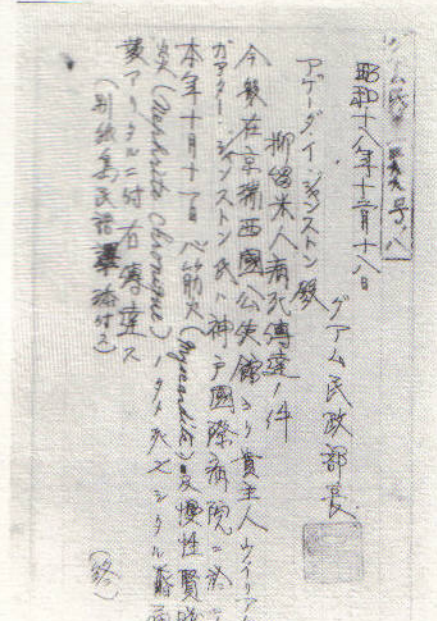 グアム民 号ノ八
昭和十八年十二月十八日
グアム民政部長
アゲーダ・イ・ジャンストン殿
抑留米人病死傳達ノ件
今般在京瑞西國公使館ヨリ貴主人ウイリアム
ガアター・ジャンストン氏ハ神戸國際病院ニ於テ
本年十月十一日心筋炎(Myocardite)及慢性腎臓
炎(Nephrite chronique)ノタメ死亡シタル旨
アリタルニ付右傳達ス
(別紙島民譯添付ス)
(終)